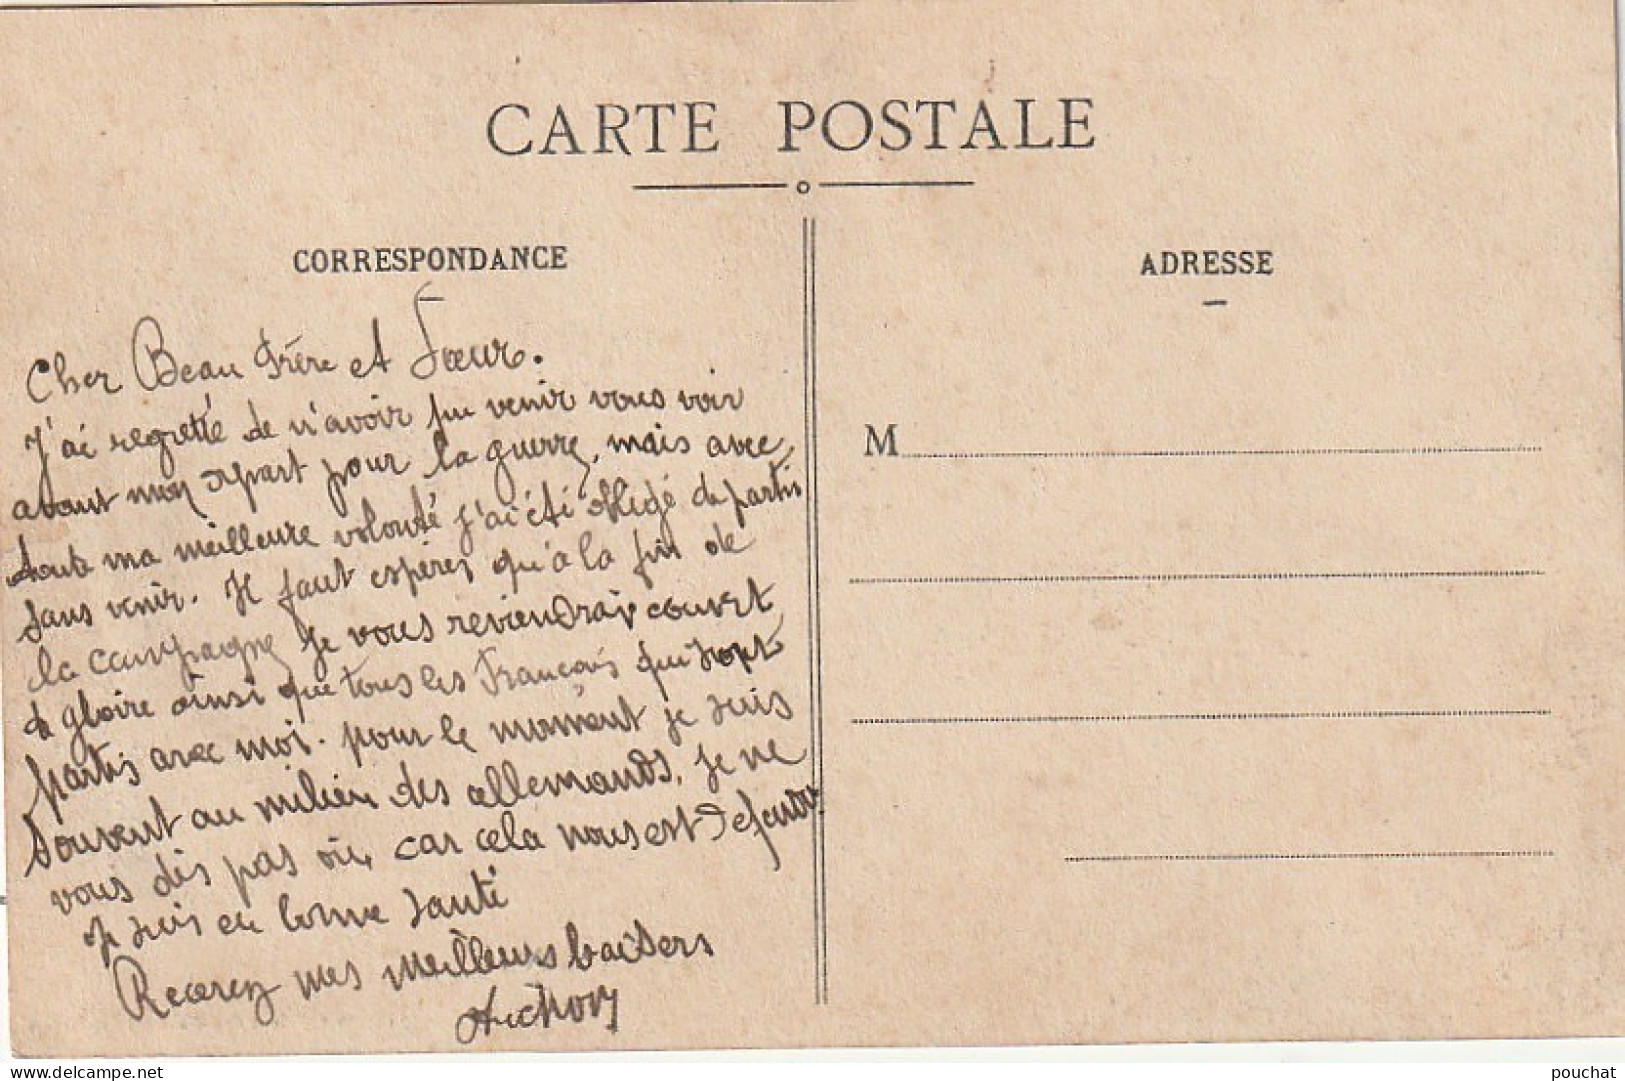 CARTE POSTALE
CORRESPONDANCE
Cher Beau Frère et Sœur.
J'ai regretté de n'avoir pu venir vous voir
avant mon depart pour la guerre, mais avec
toute ma meilleure volonté j'ai été obligé de partir
sans venir. Il faut espérer qu'à la fin de
la campagne je vous reviendrai couvert
de gloire ainsi que tous les Français qui sont
partis avec moi. pour le moment je suis
souvent au milieu des allemands, je ne
vous dis pas où, car cela nous est defendu
je suis en bonne santé
Recevez mes meilleurs baisers
ADRESSE
M
delcampe.net
pouchat